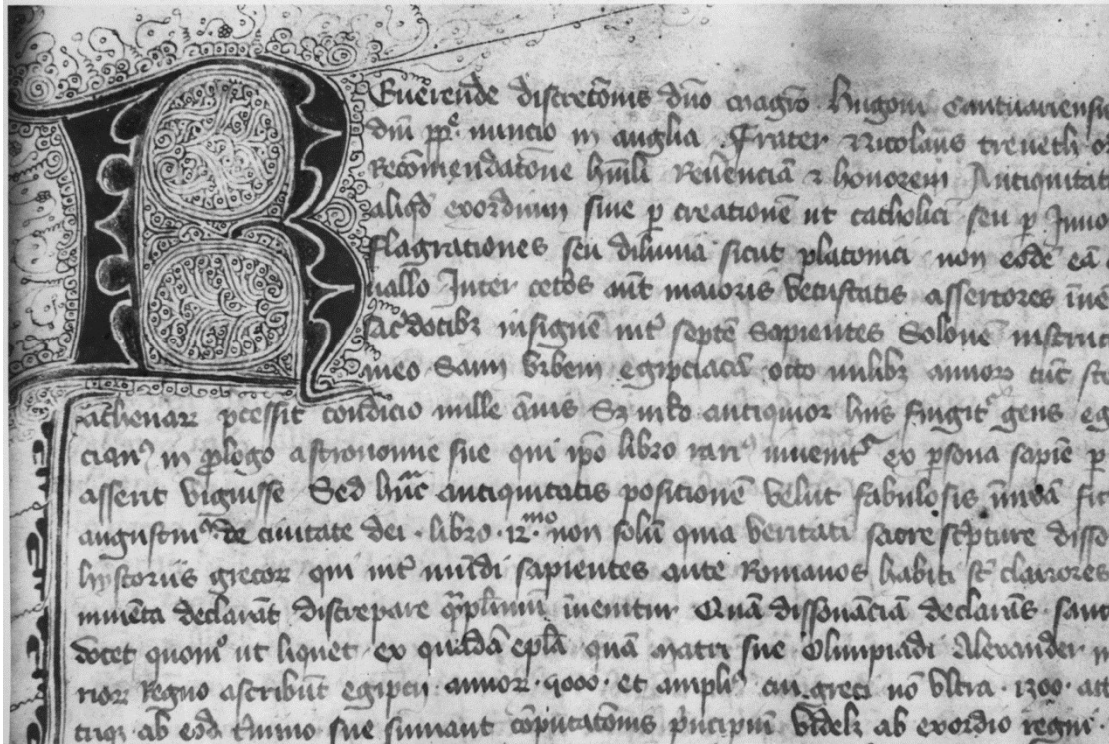 Reuerende discretõnis dño magrõ hugoni Cantuariensi
dñi ppe. nuncio in anglia. Frater Nicolaus treueth or
Recõmendatõne hũili Reũenciã & honorem Antiquitat
aliqd exordium siue p creationẽ ut catholici seu p
flagrationes seu diluuia sicut platonici non eodẽ eã
uallo Inter ceteros aũt maioris vetustatis assertores inuẽ
sacdotibz insignẽ int septẽ sapientes Solonẽ instruc
meo Saim vrbem egipciacã octo milibz annorꝝ
athenarꝝ pcessit condicio mille ãnis Sz antiquior huis fingit gens eg
cianꝰ in plogo astronomie sue qui ipo libro rarꝰ inuenitr ex psona sapiẽ p
asserit viguisse Sed hãc antiquitatis positionẽ velut fabulosis
augustinꝰ de ciuitate dei . libro . 12.mo non solũ quia veritati sacre scpture disso
hystoriis grecorꝝ qui int mũdi sapientes ante Romanos habiti st clariores
inuenta declarãt discrepare qplimũ inuenitur Quã dissonãciã declarãs sanc
docet quomo ut liquet ex quadã eplã quã matri sue Olimpiadi Alexander m
rior Regno ascribũt egiptii annorꝝ . 5000 . et ampliꝰ cui greci nõ vltra . 1300 . att
ab eod tmino sue sumant cõputatõnis pncipiũ videlz ab exordio regni .